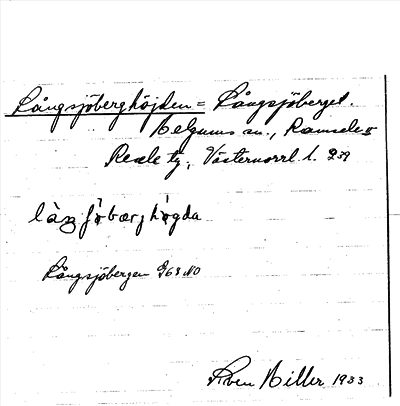 Långsjöberghöjden = Långsjöberget.
Helgums sn., Ramsele
Resele tg, Västernorrl. l. 239
làŋ ʃö̀bærjhö̀gda
Långsjöbergen 963 NO
Sven Hiller 1933